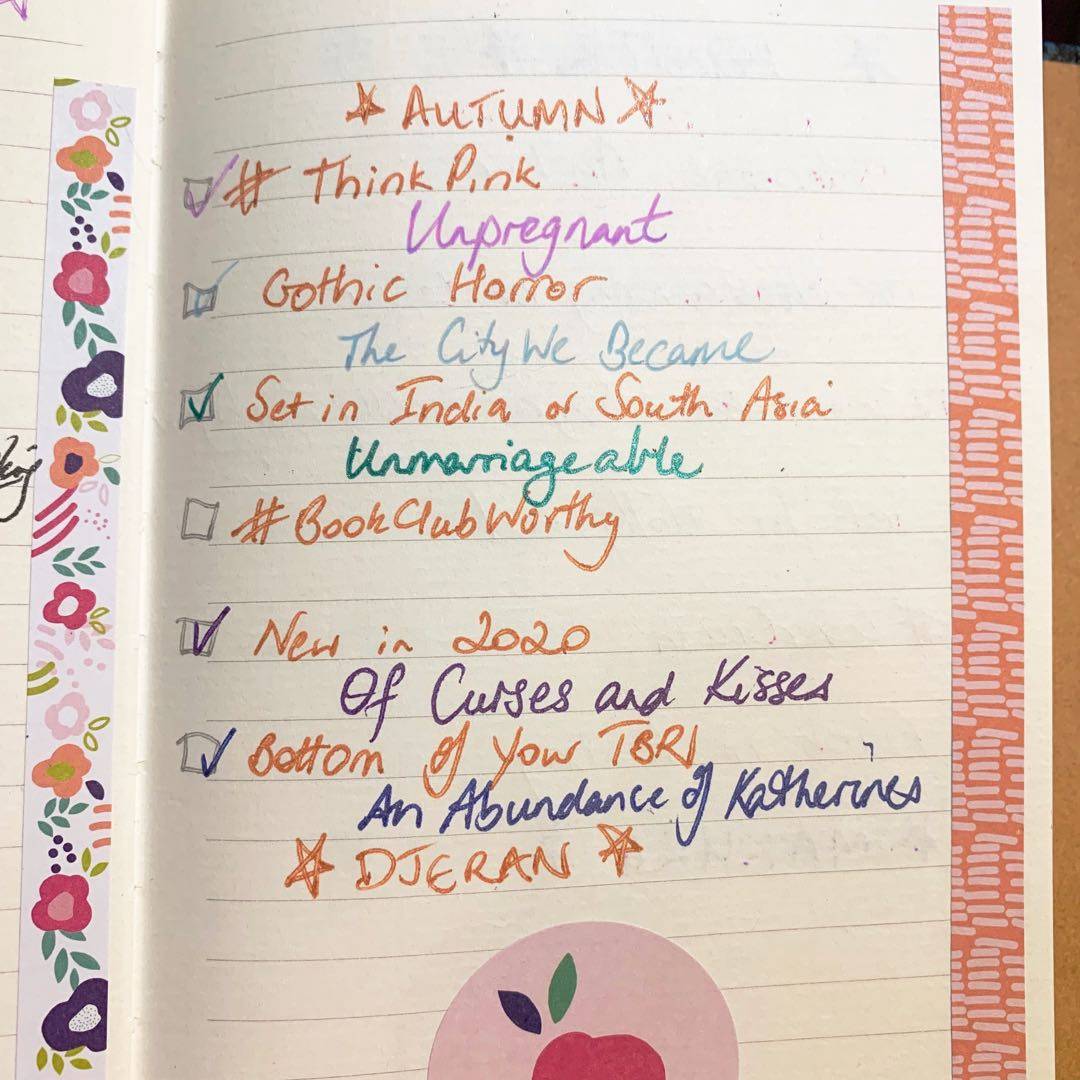 AUTUMN
# Think Pink
Unpregnant
Gothic Horror
The City We Became
Set in India or South Asia
Unmarriageable
#BookClubWorthy
New in 2020
Of Curses and Kisses
Bottom of Your TBR
An Abundance of Katherines
DJERAN